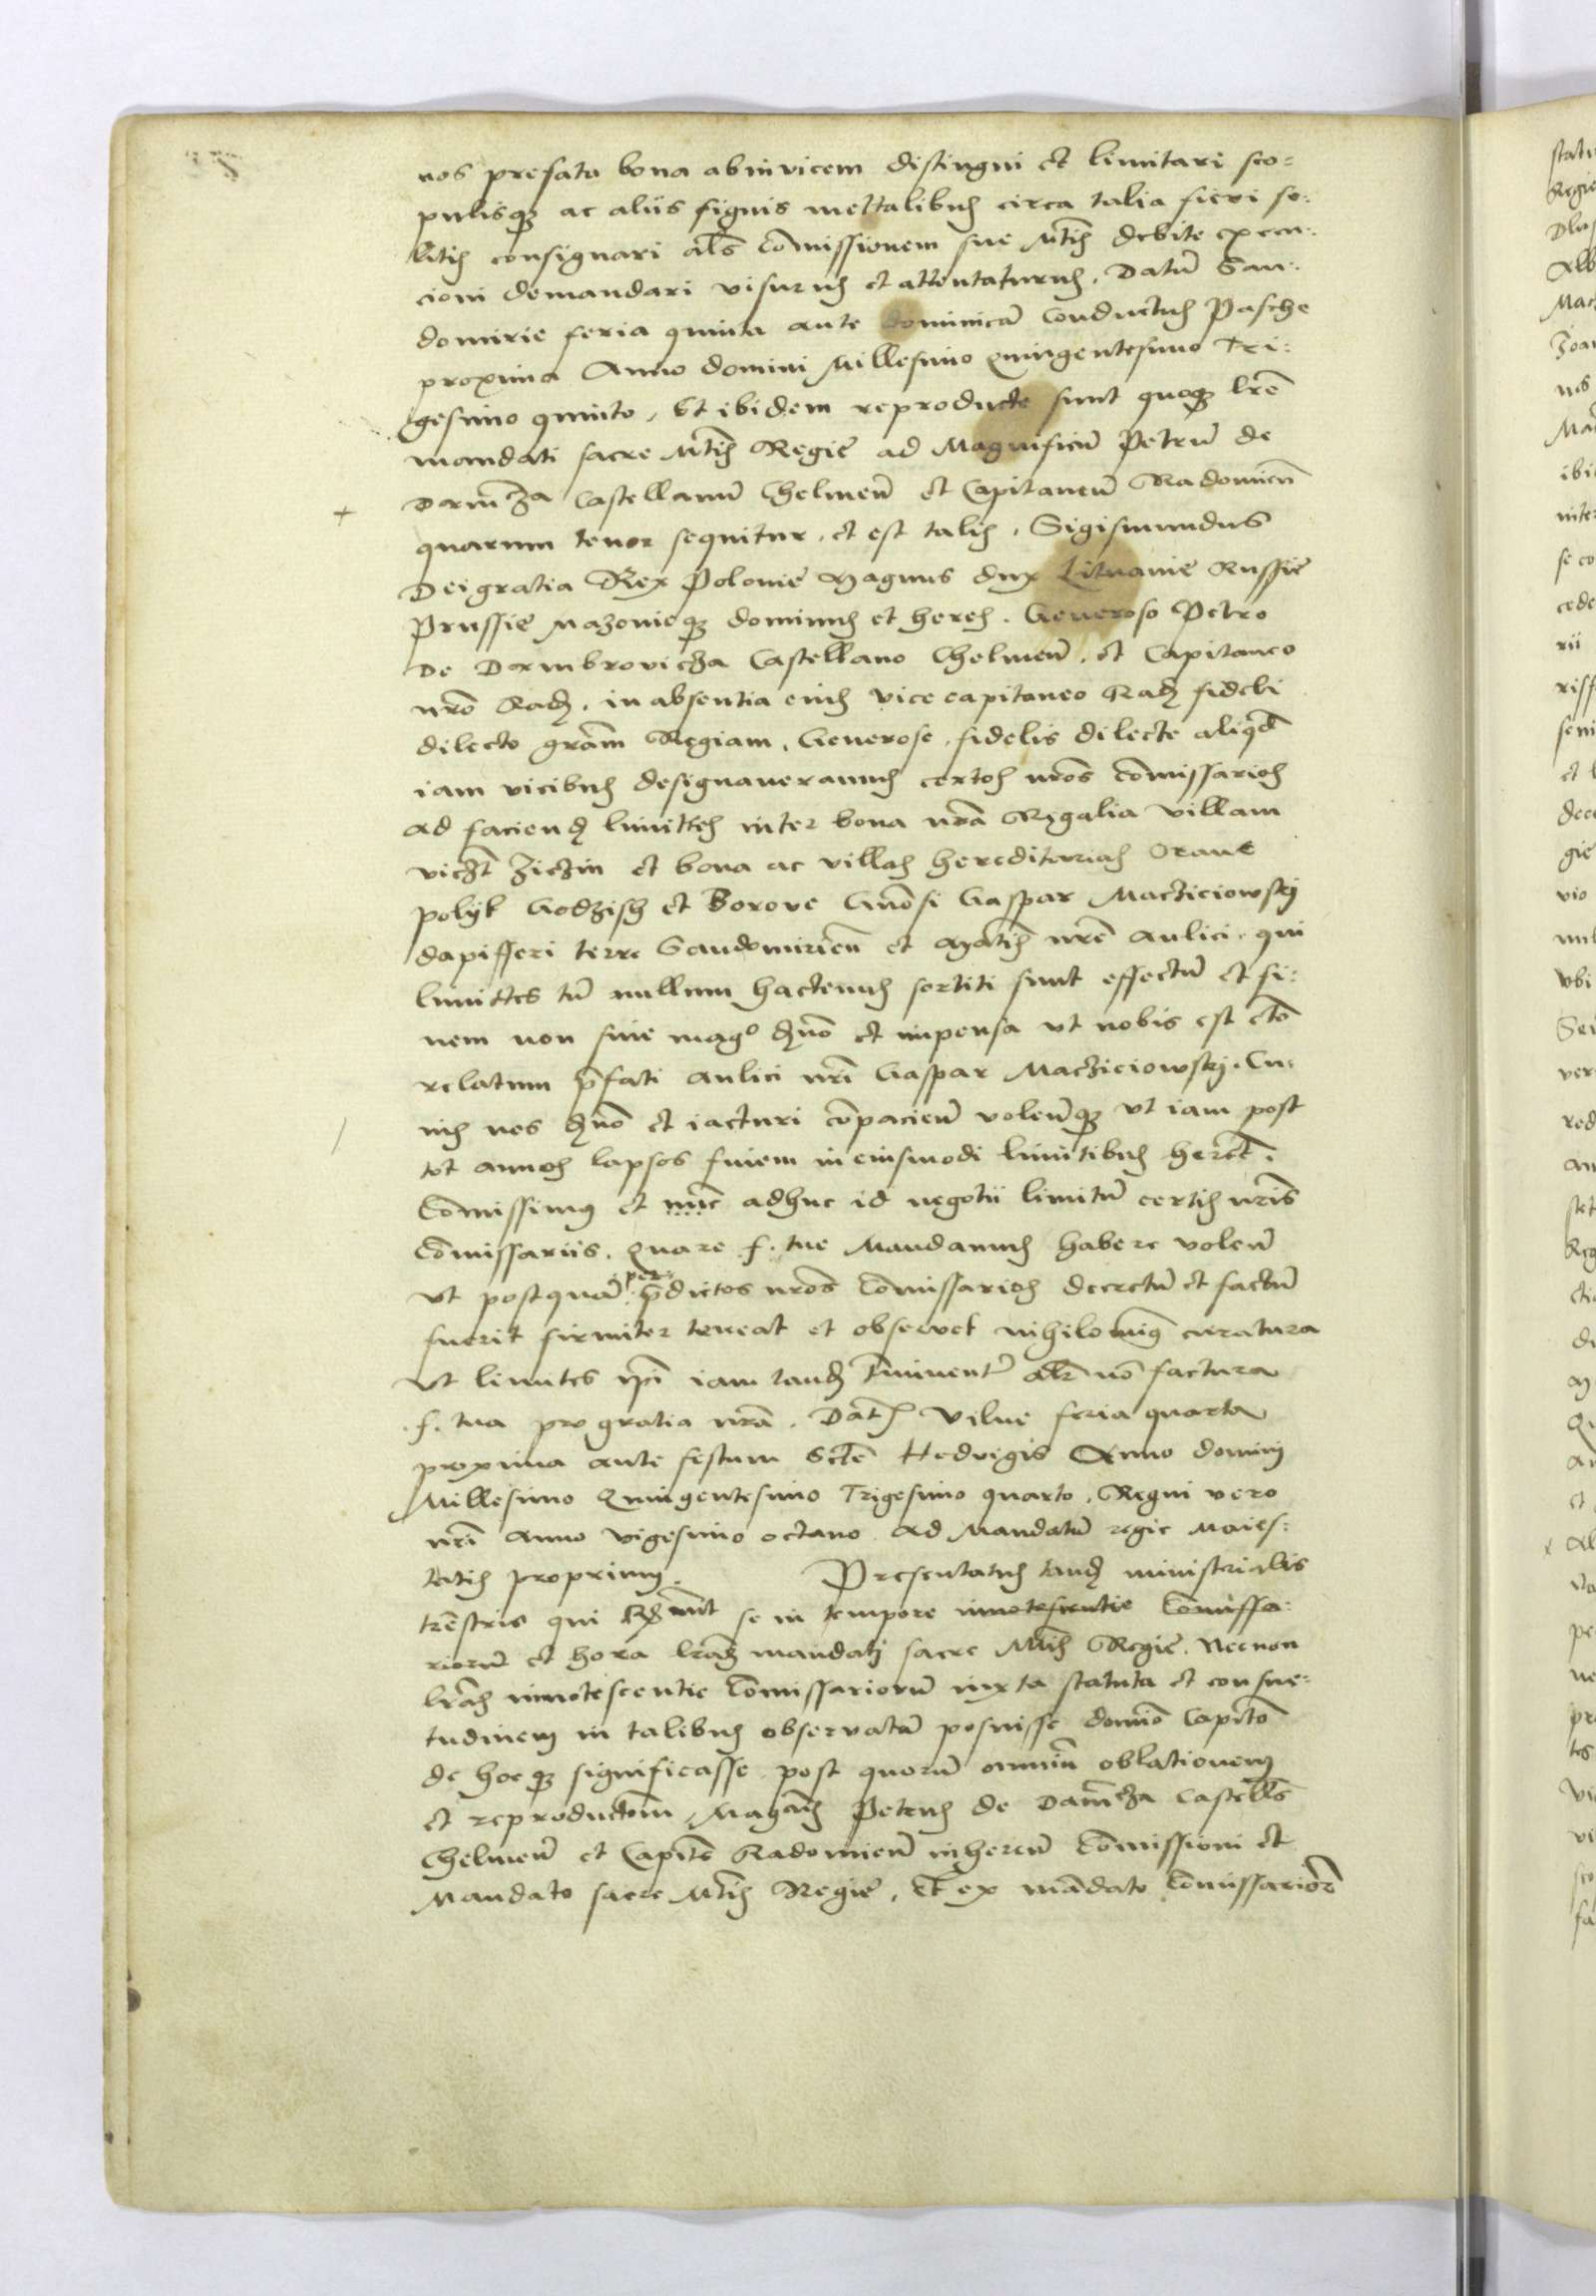 nos prefata bona abinvicem distingui et limitari sco=
pulisq3 ac aliis signis mettalibus circa talia fieri so:
litis consignari als Comissionem sue Mtis debite execu:
cioni demandari visurus et attentaturus. Datu San:
domirie feria quinta ante dominica Conductus Pasche
proxima Anno domini Millesimo Quingentesimo Tri:
gesimo quinto. Et ibidem reproducte sunt quoq3 lre
mandati sacre Mtis Regie ad Magnificu Petru de
Damcza Castellanu Chelmen et Capitaneu Radomien
quarum tenor sequitur. et est talis. Sigismundus
Dei gratia Rex Polonie Magnus dux Lituanie Russie
Prussie Mazovieq3 dominus et heres. Generoso Petro
De Dambrovicza Castellano Chelmen. et Capitaneo
nro Rad. in absentia eius vice capitaneo Rad fideli
dilecto gram Regiam. Generose fidelis dilecte aliqd
iam vicibus designaveramus certos nros Comissarios
ad faciend limites inter bona nra Regalia villam
viczt et bona ac villas hereditarias
polijk Godzisz et Borove Gnosi Gaspar Macziciowskj
dapifferi terre Sandomirien et Matis nre aulici. qui
limittes tu nullum hactenus sortiti sunt effectu et fi:
nem non sine mago dno et impensa ut nobis est
relatum pfati aulici nri Gaspar Macziciowskj. Cu:
ius nos dno et iacturi compacien volenq3 ut iam post
tot annos lapsos finem in eiusmodi limitibus
Comissimus et nuc adhuc id negotii limitu certis nris
Comissariis. Quare f. tue Mandamus habere volen
ut postqua per pdictos nros Comissarios decretu et factu
fuerit firmiter teneat et observet nihilominus curatura
ut limites ipsi iam tand tminentr alr no factura
f. tua pro gratia nra. Dat Vilne feria quarta
proxima ante festum Scte Hedvigis Anno domini
Millesimo Quingentesimo Trigesimo quarto. Regni vero
nri anno vigesimo octavo. Ad Mandatu regie Maies:
tatis proprium. Presentatus tand ministerialis
trestris qui se in tempore innotescentie Comissa:
rioru et hora lras mandatj sacre Mtis Regie. Necnon
lras innotescentie Comissarioru iuxta statuta et consue:
tudinem in talibus observata posuisse domo Capito
de hocq3 significasse post quoru omniu oblationem
et reproductom Magcus Petrus de Damcza Castells
Chelmen et Capite Radomien inheren Comissioni et
Mandato sacre Mtis Regie. Et ex mandato Comissariore